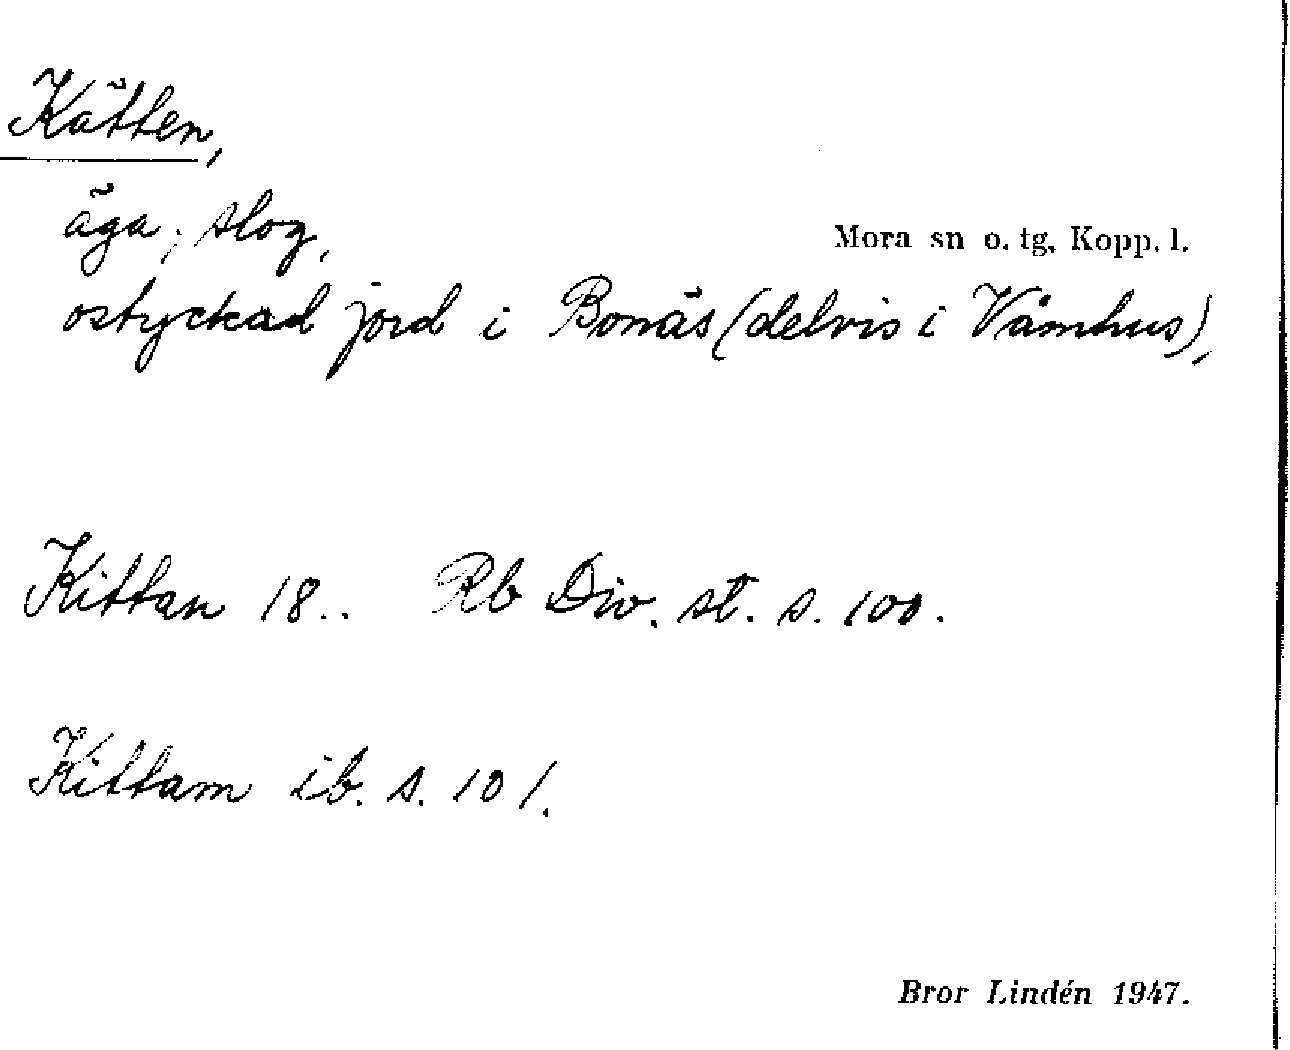 Kätten,
äga; slog,
Mora sn o. tg. Kopp. l.
ostyckad jord i Bonäs (delvis i Våmhus),
Kittan 18.. Rb Div. st. s. 100.
Kittam ib. s. 101.
Bror Lindén 1947.